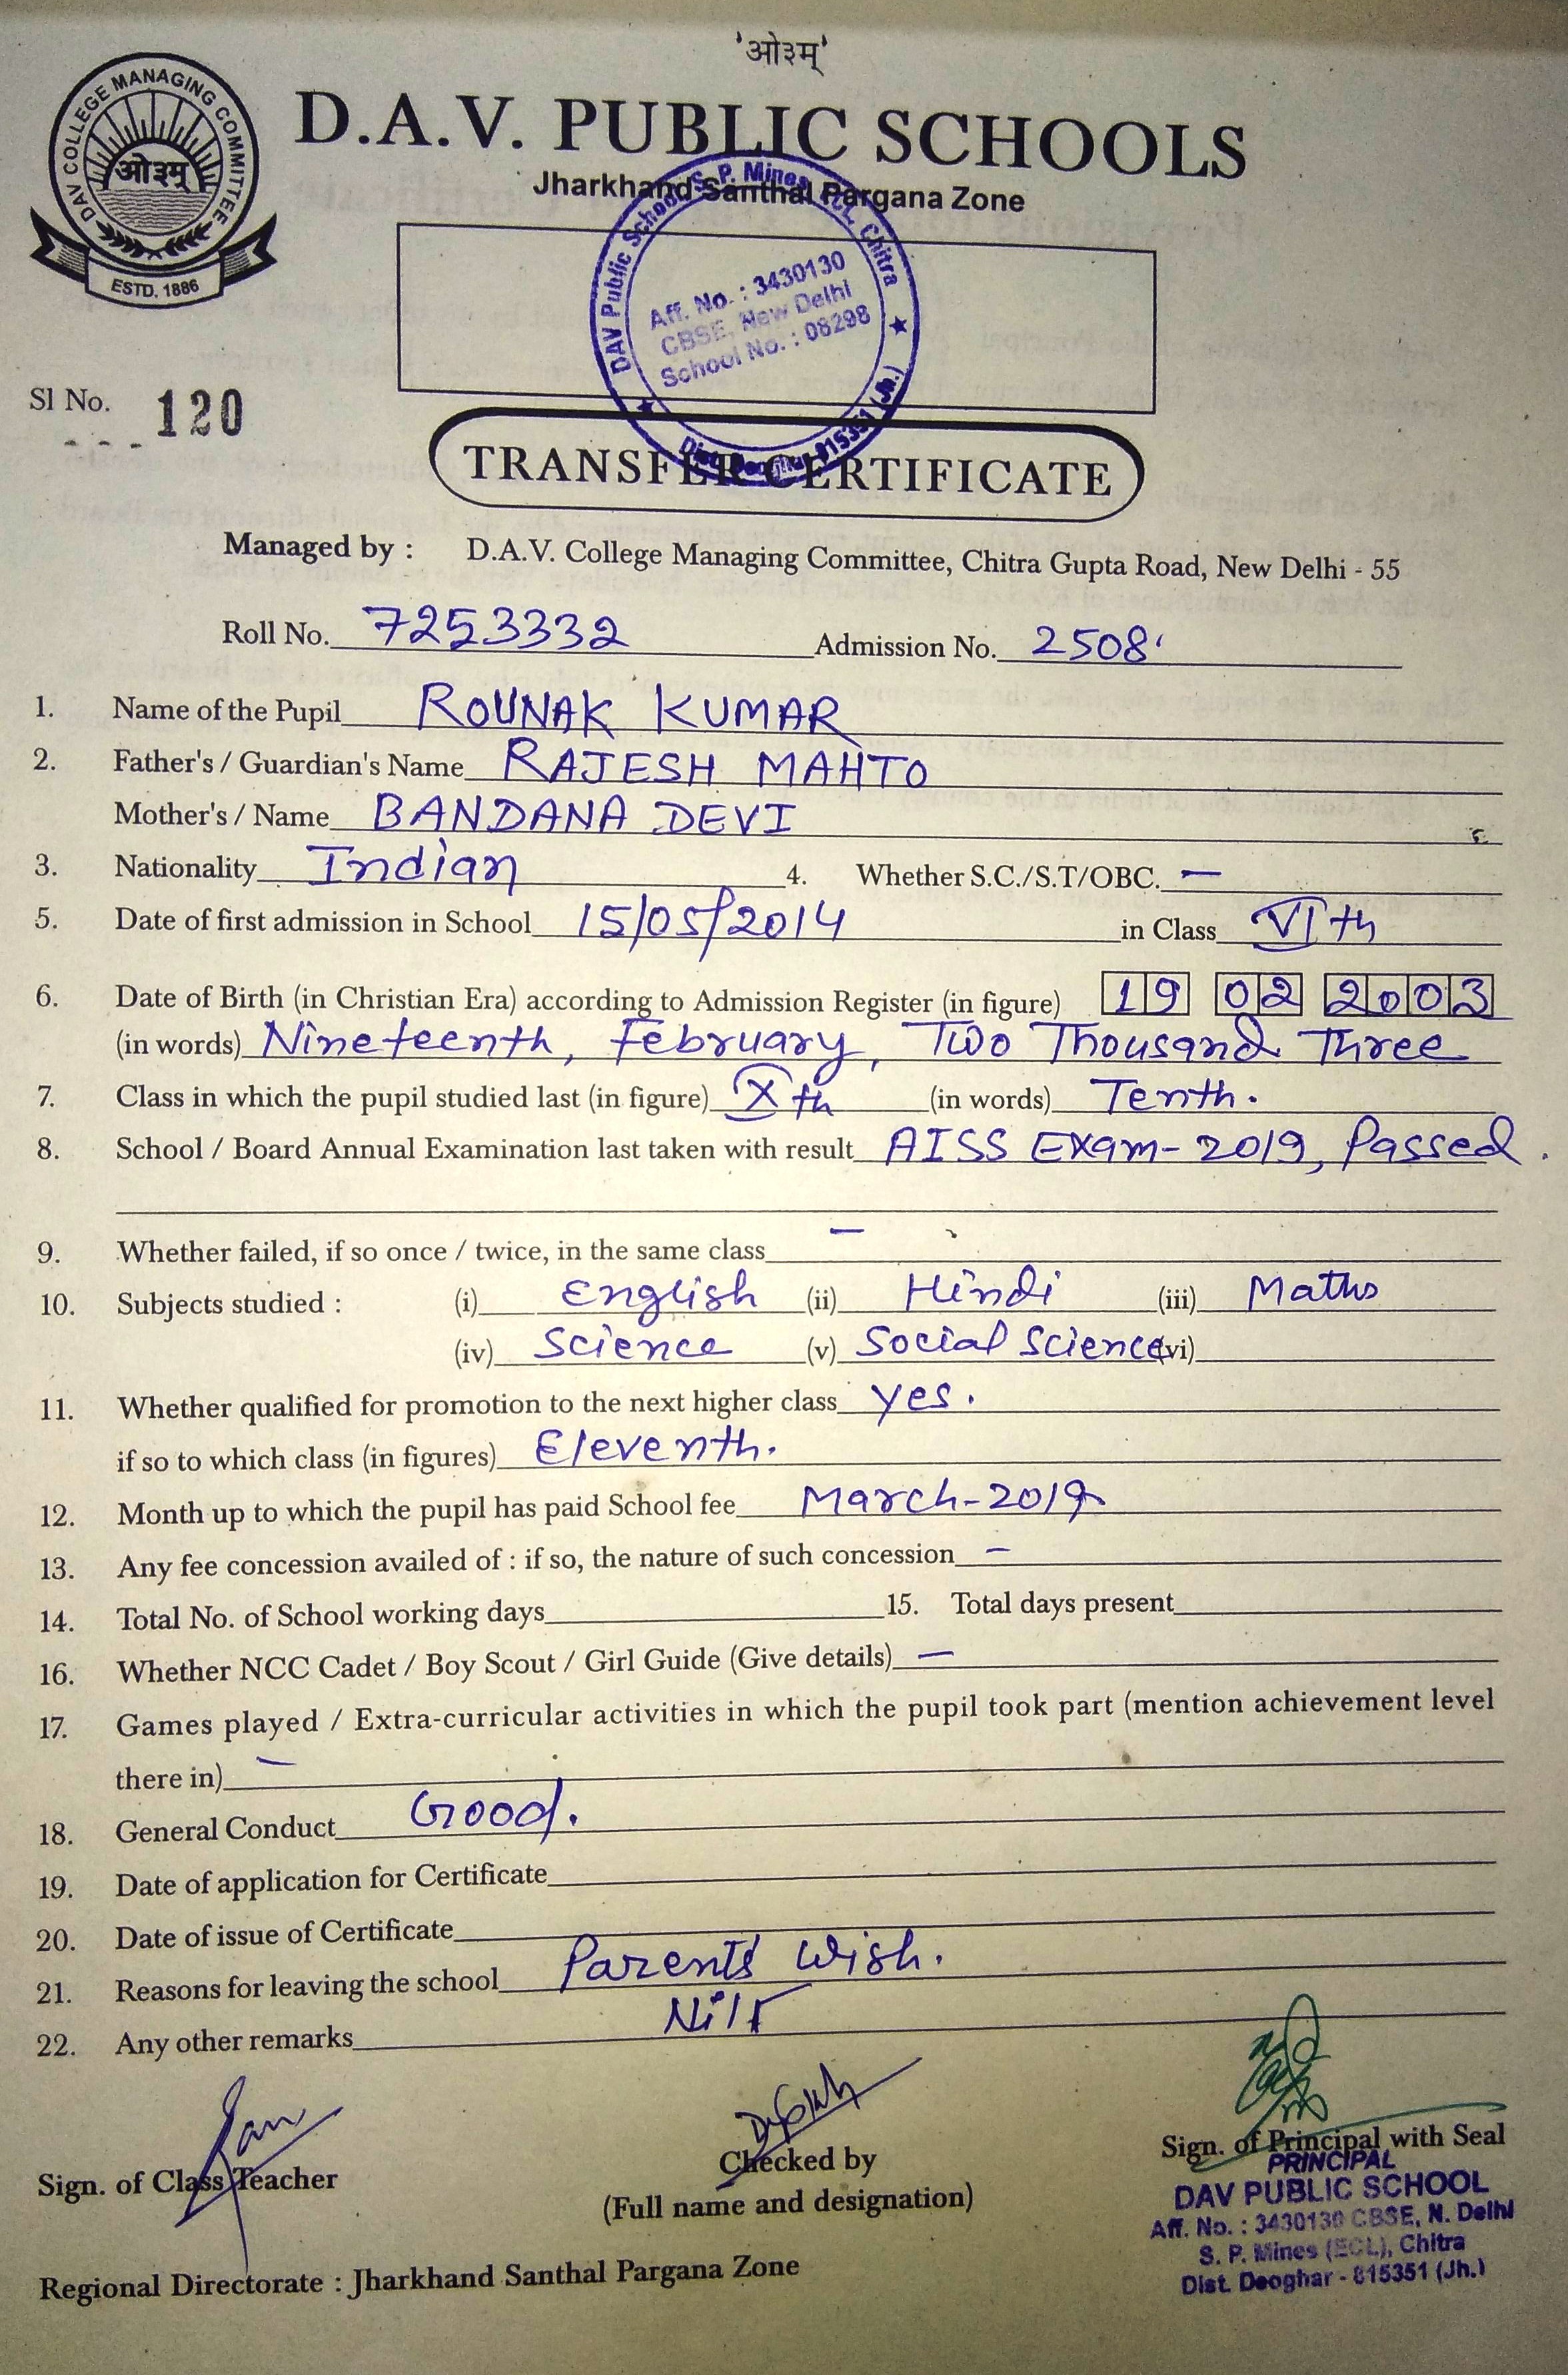 'ओ३म्'
DAV COLLEGE MANAGING COMMITTEE
ओ३म्
ESTD. 1886
D.A.V. PUBLIC SCHOOLS
Jharkhand Santhal Pargana Zone
DAV Public School, S. P. Mines, ECL, Chitra
Aff. No. : 3430130
CBSE, New Delhi
School No. : 08298
Dist. Deoghar 815351 (Jh.)
Sl No. 120
TRANSFER CERTIFICATE
Managed by : D.A.V. College Managing Committee, Chitra Gupta Road, New Delhi - 55
Roll No. 7253332 Admission No. 2508
1. Name of the Pupil ROUNAK KUMAR
2. Father's / Guardian's Name RAJESH MAHTO
Mother's / Name BANDANA DEVI
3. Nationality Indian 4. Whether S.C./S.T/OBC. —
5. Date of first admission in School 15/05/2014 in Class VIth
6. Date of Birth (in Christian Era) according to Admission Register (in figure) 19 02 2003
(in words) Nineteenth, February, Two Thousand Three
7. Class in which the pupil studied last (in figure) Xth (in words) Tenth.
8. School / Board Annual Examination last taken with result AISS Exam-2019, Passed.
9. Whether failed, if so once / twice, in the same class —
10. Subjects studied : (i) English (ii) Hindi (iii) Maths
(iv) Science (v) Social Science (vi)
11. Whether qualified for promotion to the next higher class yes.
if so to which class (in figures) Eleventh.
12. Month up to which the pupil has paid School fee March-2019
13. Any fee concession availed of : if so, the nature of such concession —
14. Total No. of School working days 15. Total days present
16. Whether NCC Cadet / Boy Scout / Girl Guide (Give details) —
17. Games played / Extra-curricular activities in which the pupil took part (mention achievement level
there in) —
18. General Conduct Good.
19. Date of application for Certificate
20. Date of issue of Certificate
21. Reasons for leaving the school Parents' Wish.
22. Any other remarks Nil
Sign. of Class Teacher
Checked by
(Full name and designation)
Sign. of Principal with Seal
PRINCIPAL
DAV PUBLIC SCHOOL
Aff. No. : 3430130 CBSE, N. Delhi
S. P. Mines (ECL), Chitra
Dist. Deoghar - 815351 (Jh.)
Regional Directorate : Jharkhand Santhal Pargana Zone